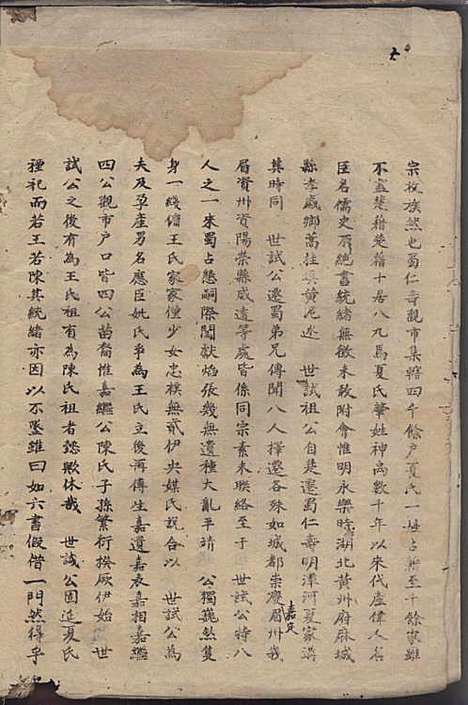 宗枝族然也蜀仁壽觀市集轄四千餘戶夏氏一姓占斯至千餘家雖
不盡楚籍楚籍十居八九為夏氏肇姓神禹數千年以來代產偉人名
臣名儒史冊總書統緒無徵未敢附會惟明永樂時湖北黃州府麻城
縣孝感鄉萬柱其黃尼述 世試祖公自楚遷蜀仁壽明洋河夏家溝
其時同 世試公遷蜀弟兄傳聞八人擇遷各殊如城都崇慶眉州我
嘉定
眉資州資陽榮縣威遠等處皆係同宗素未聯絡至于 世試公特八
人之一來蜀占懸嗣際闖獻焰張幾無遺種大亂平靖 公獨巍然隻
身一綫僧王氏家家僅少女忠樸無貳伊央媒氏說合以 世試公為
夫及孕產男名應臣姚氏乎為王氏立後再傳生嘉遺嘉衣嘉相嘉繼
四公觀市戶口皆四公苗裔惟嘉繼公陳氏子孫繁衍揆厥伊始 世
試公之後有為王氏祖有為陳氏祖者懿歟休哉 世試公固延夏氏
禋祀而若王若陳其統緒亦因以不墜雖曰如六書假借一門然得乎